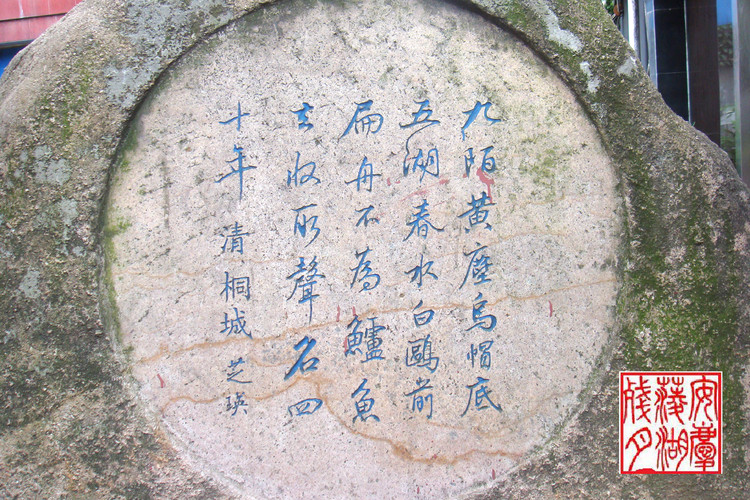 九陌黄塵烏帽底
五湖春水白鷗前
扁舟不為鱸魚
去收取聲名四
十年 清 桐城 芝瑛